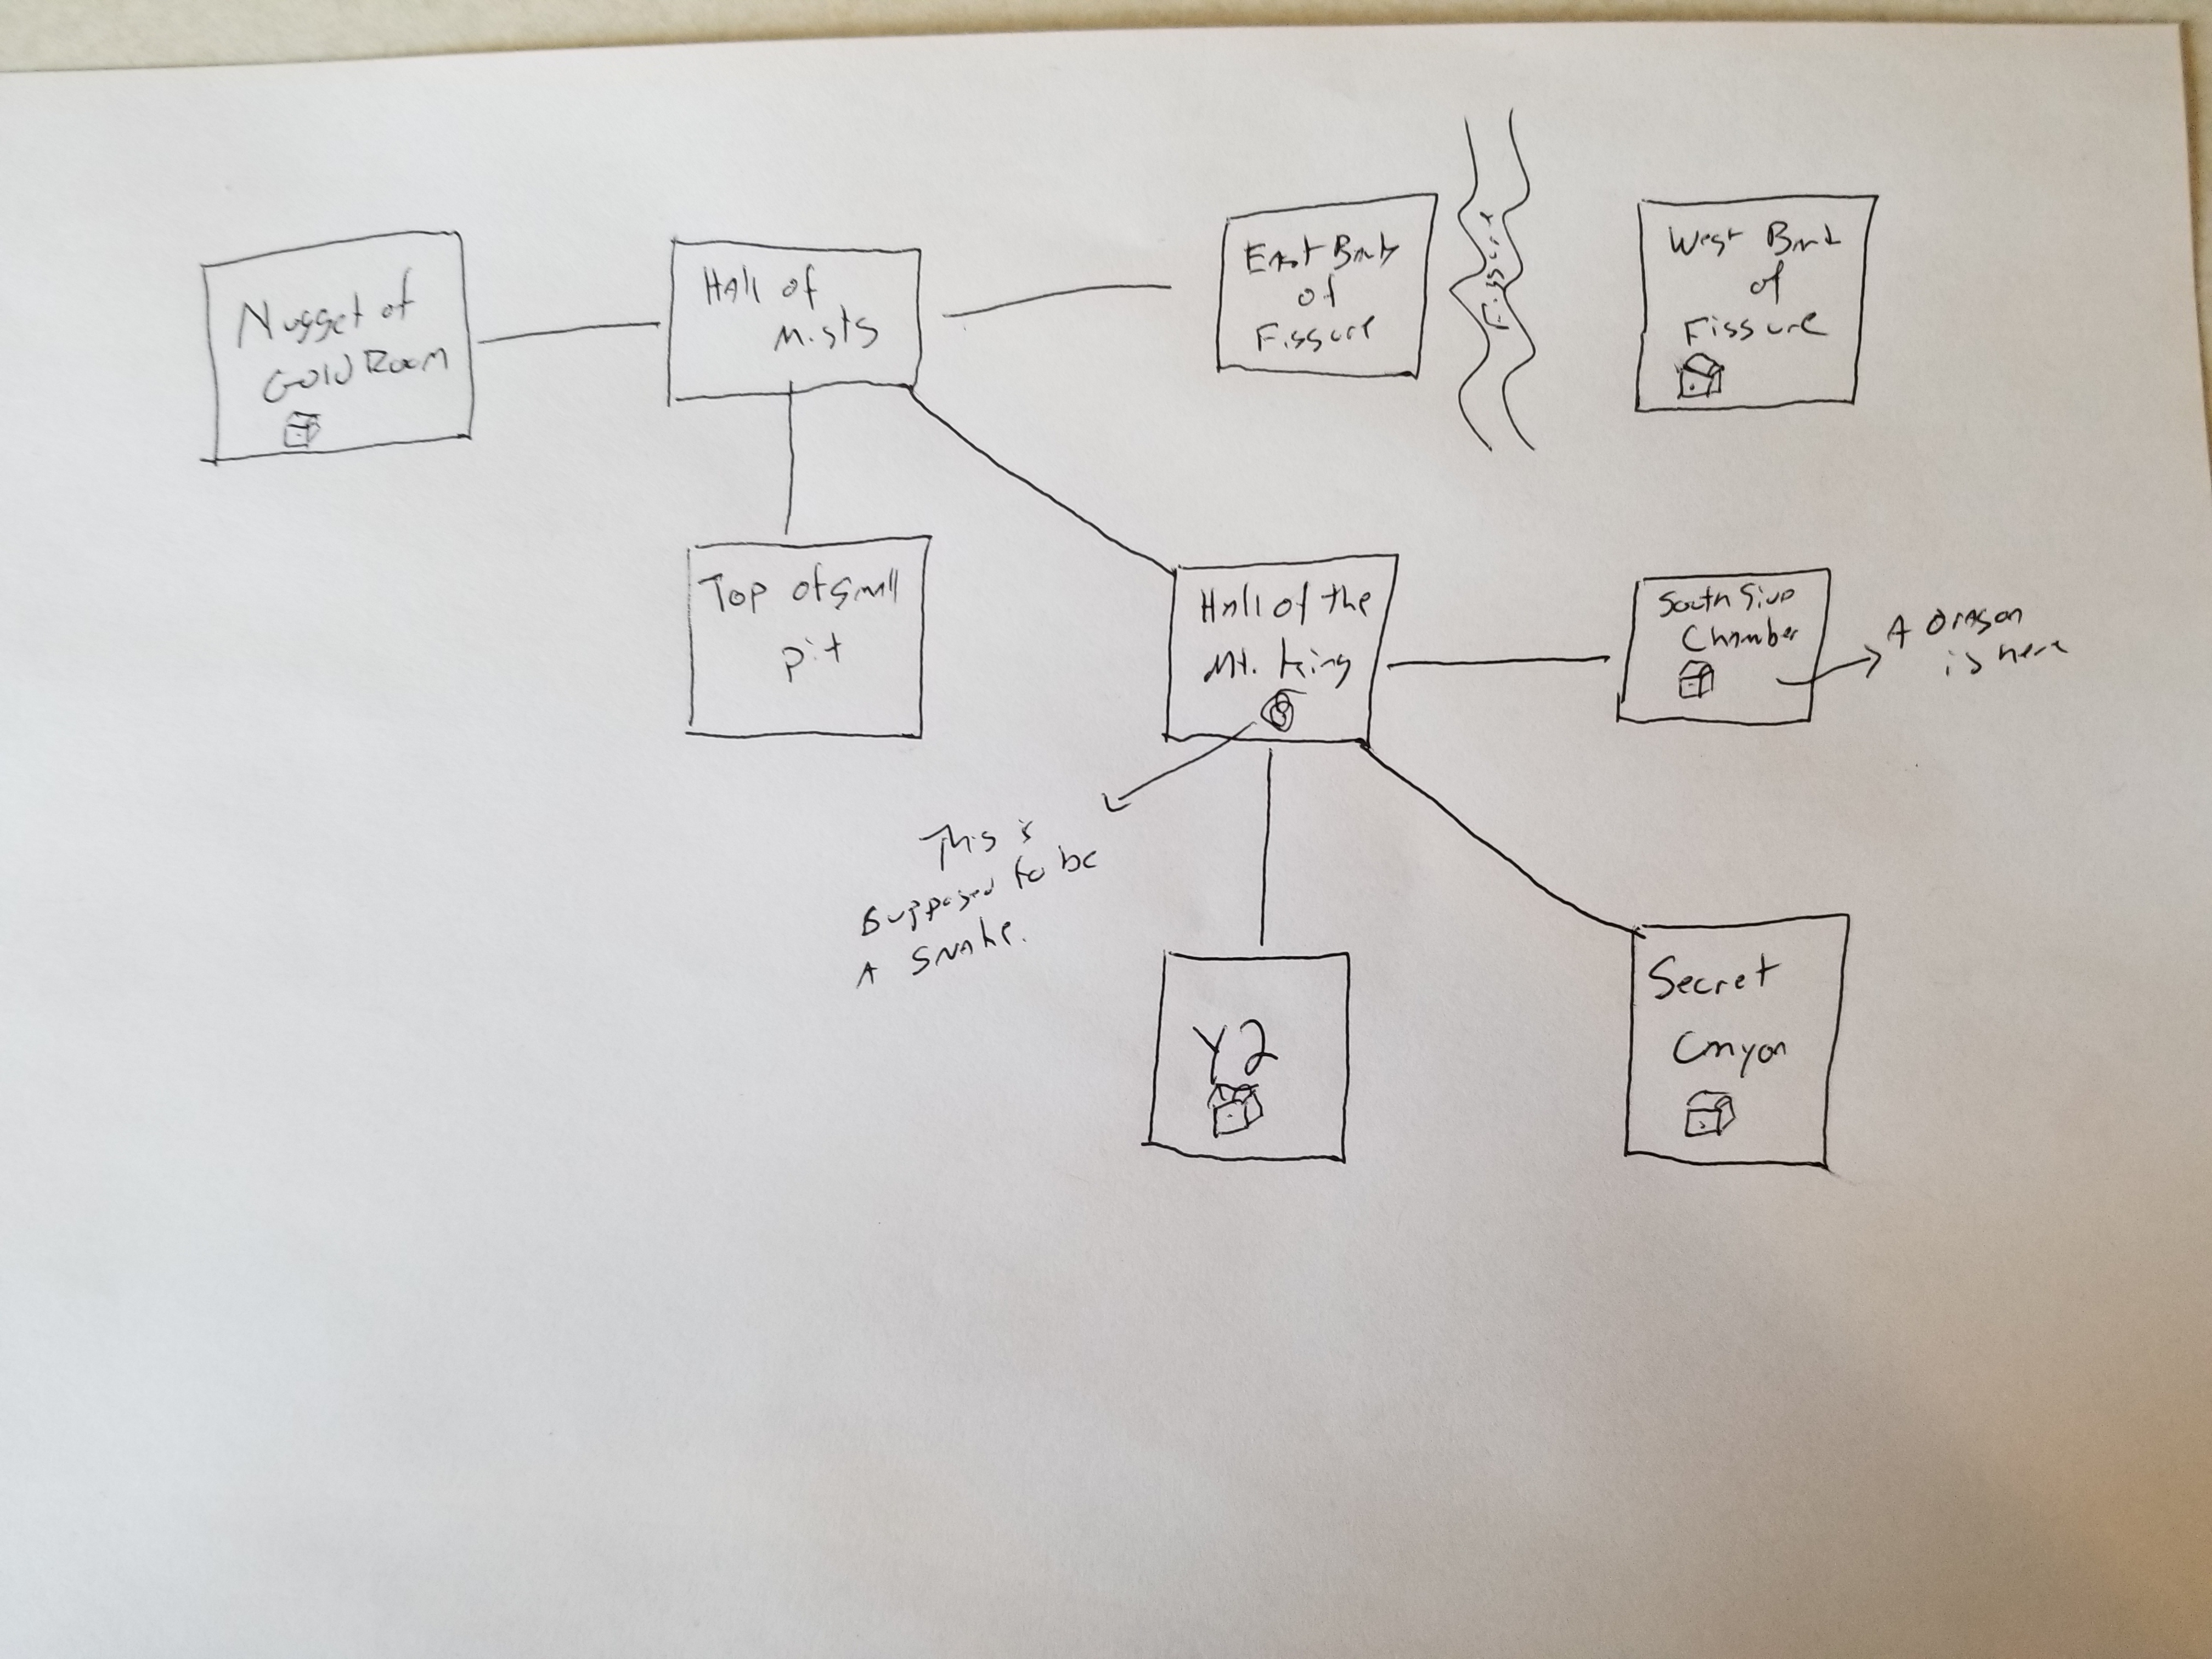 Nugget of
Gold Room
Hall of
Mists
East Bank
of
Fissure
Fissure
West Bank
of
Fissure
Top of small
pit
Hall of the
Mt. King
South Side
Chamber
A Dragon
is here
This is
supposed to be
A snake.
Y2
Secret
Canyon